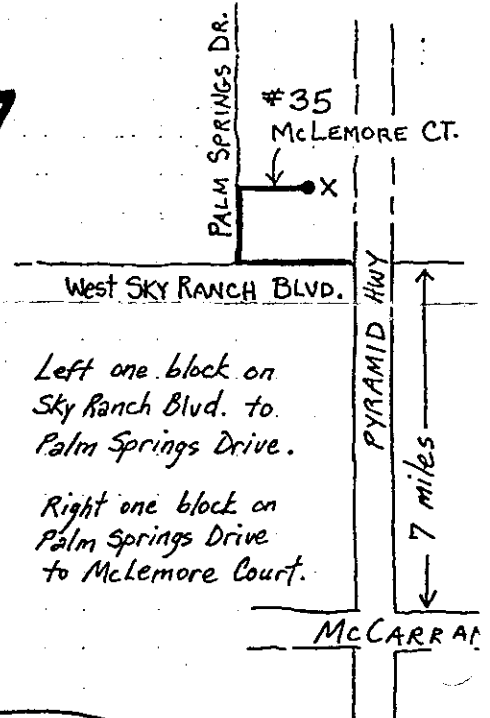 PALM SPRINGS DR.
#35
McLEMORE CT.
X
West SKY RANCH BLVD.
PYRAMID HWY
7 miles
Left one block on
Sky Ranch Blvd. to
Palm Springs Drive.
Right one block on
Palm Springs Drive
to McLemore Court.
McCARRAN